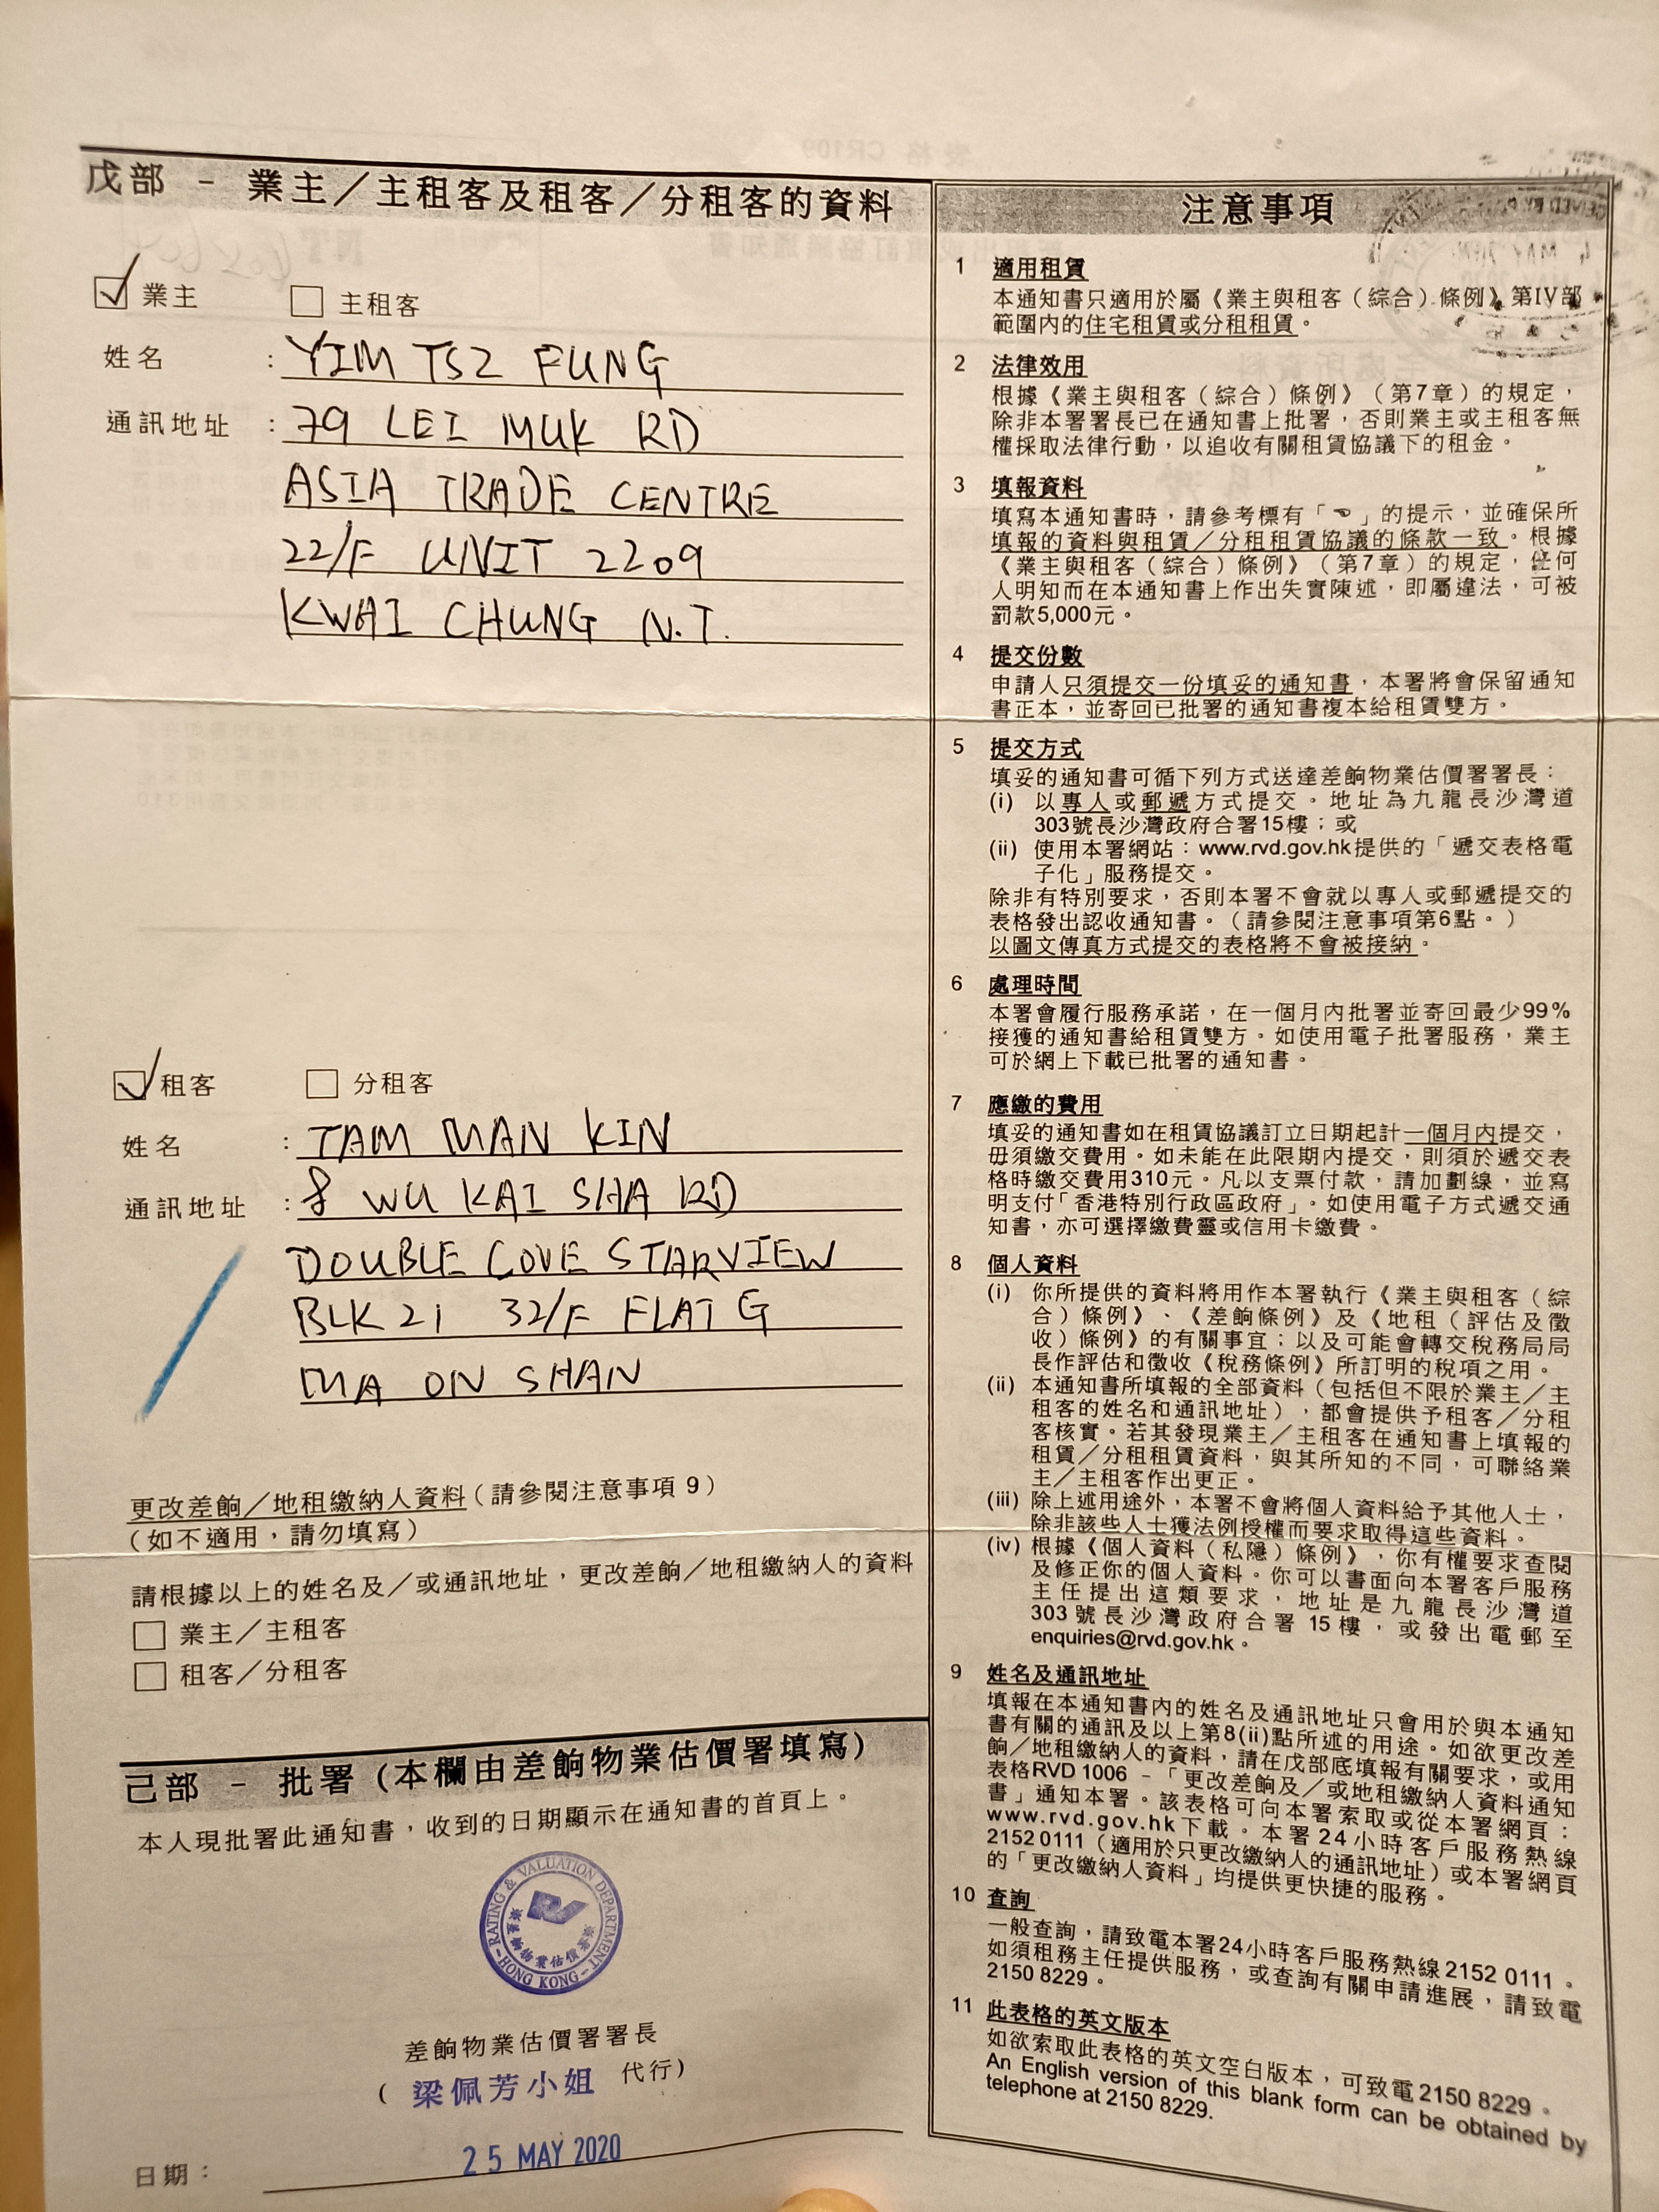 戊部 - 業主／主租客及租客／分租客的資料
業主
主租客
姓名 : YIM TSZ FUNG
通訊地址 : 79 LEI MUK RD
ASIA TRADE CENTRE
22/F UNIT 2209
KWAI CHUNG N.T.
租客
分租客
姓名 : TAM MAN KIN
通訊地址 : 8 WU KAI SHA RD
DOUBLE COVE STARVIEW
BLK 21 32/F FLAT G
MA ON SHAN
更改差餉／地租繳納人資料（請參閱注意事項 9）
（如不適用，請勿填寫）
請根據以上的姓名及／或通訊地址，更改差餉／地租繳納人的資料
業主／主租客
租客／分租客
己部 - 批署 (本欄由差餉物業估價署填寫)
本人現批署此通知書，收到的日期顯示在通知書的首頁上。
RATING & VALUATION DEPARTMENT
差餉物業估價署
HONG KONG
差餉物業估價署署長
( 梁佩芳小姐 代行)
日期： 25 MAY 2020
注意事項
1 適用租賃
本通知書只適用於屬《業主與租客（綜合）條例》第IV部
範圍內的住宅租賃或分租租賃。
2 法律效用
根據《業主與租客（綜合）條例》（第7章）的規定，
除非本署署長已在通知書上批署，否則業主或主租客無
權採取法律行動，以追收有關租賃協議下的租金。
3 填報資料
填寫本通知書時，請參考標有「☜」的提示，並確保所
填報的資料與租賃／分租租賃協議的條款一致。根據
《業主與租客（綜合）條例》（第7章）的規定，任何
人明知而在本通知書上作出失實陳述，即屬違法，可被
罰款5,000元。
4 提交份數
申請人只須提交一份填妥的通知書，本署將會保留通知
書正本，並寄回已批署的通知書複本給租賃雙方。
5 提交方式
填妥的通知書可循下列方式送達差餉物業估價署署長：
(i) 以專人或郵遞方式提交。地址為九龍長沙灣道
303號長沙灣政府合署15樓；或
(ii) 使用本署網站：www.rvd.gov.hk提供的「遞交表格電
子化」服務提交。
除非有特別要求，否則本署不會就以專人或郵遞提交的
表格發出認收通知書。（請參閱注意事項第6點。）
以圖文傳真方式提交的表格將不會被接納。
6 處理時間
本署會履行服務承諾，在一個月內批署並寄回最少99%
接獲的通知書給租賃雙方。如使用電子批署服務，業主
可於網上下載已批署的通知書。
7 應繳的費用
填妥的通知書如在租賃協議訂立日期起計一個月內提交，
毋須繳交費用。如未能在此限期內提交，則須於遞交表
格時繳交費用310元。凡以支票付款，請加劃線，並寫
明支付「香港特別行政區政府」。如使用電子方式遞交通
知書，亦可選擇繳費靈或信用卡繳費。
8 個人資料
(i) 你所提供的資料將用作本署執行《業主與租客（綜
合）條例》、《差餉條例》及《地租（評估及徵
收）條例》的有關事宜；以及可能會轉交稅務局局
長作評估和徵收《稅務條例》所訂明的稅項之用。
(ii) 本通知書所填報的全部資料（包括但不限於業主／主
租客的姓名和通訊地址），都會提供予租客／分租
客核實。若其發現業主／主租客在通知書上填報的
租賃／分租租賃資料，與其所知的不同，可聯絡業
主／主租客作出更正。
(iii) 除上述用途外，本署不會將個人資料給予其他人士，
除非該些人士獲法例授權而要求取得這些資料。
(iv) 根據《個人資料（私隱）條例》，你有權要求查閱
及修正你的個人資料。你可以書面向本署客戶服務
主任提出這類要求，地址是九龍長沙灣道
303號長沙灣政府合署15樓，或發出電郵至
enquiries@rvd.gov.hk。
9 姓名及通訊地址
填報在本通知書內的姓名及通訊地址只會用於與本通知
書有關的通訊及以上第8(ii)點所述的用途。如欲更改差
餉／地租繳納人的資料，請在戊部底填報有關要求，或用
表格RVD 1006 –「更改差餉及／或地租繳納人資料通知
書」通知本署。該表格可向本署索取或從本署網頁：
www.rvd.gov.hk下載。本署24小時客戶服務熱線
2152 0111（適用於只更改繳納人的通訊地址）或本署網頁
的「更改繳納人資料」均提供更快捷的服務。
10 查詢
一般查詢，請致電本署24小時客戶服務熱線2152 0111。
如須租務主任提供服務，或查詢有關申請進展，請致電
2150 8229。
11 此表格的英文版本
如欲索取此表格的英文空白版本，可致電2150 8229。
An English version of this blank form can be obtained by
telephone at 2150 8229.